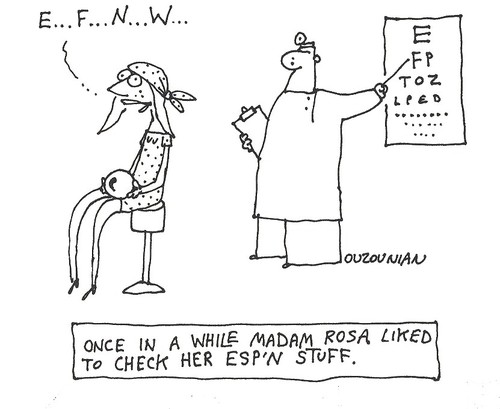 E...F...N...W...
E
FP
TOZ
LPED
OUZOUNIAN
ONCE IN A WHILE MADAM ROSA LIKED
TO CHECK HER ESP'N STUFF.